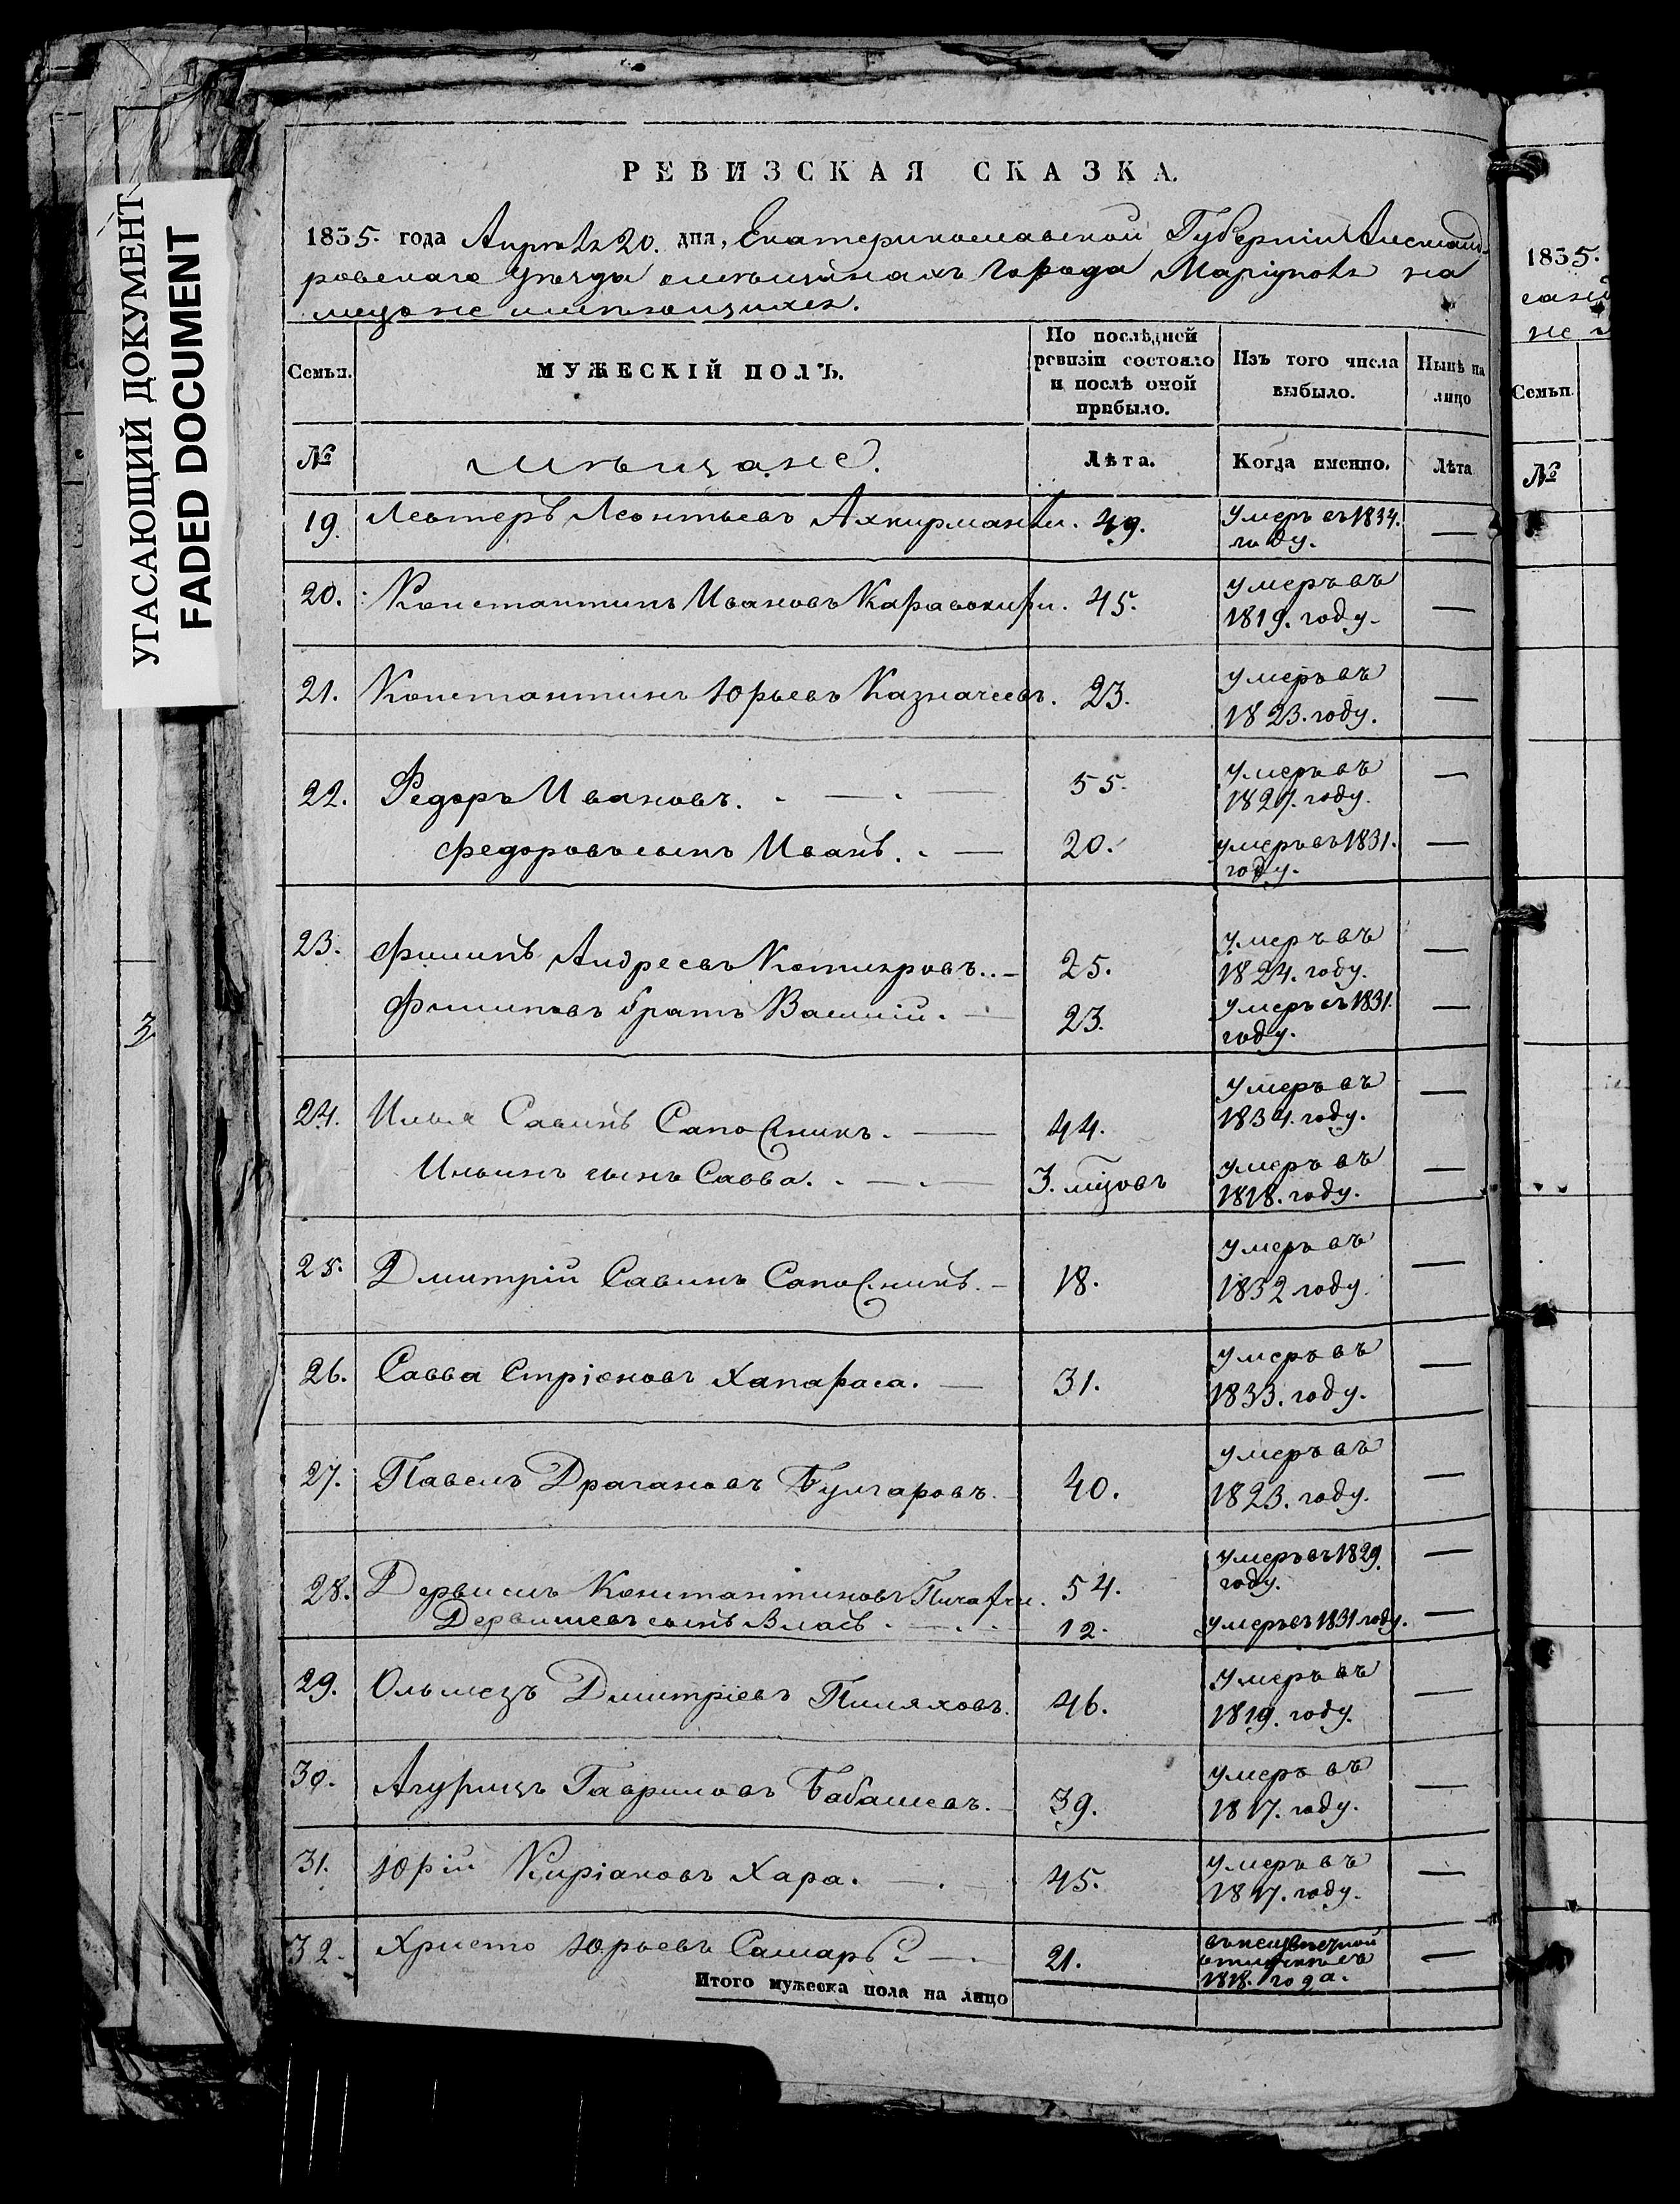 УГАСАЮЩИЙ ДОКУМЕНТ
FADED DOCUMENT
РЕВИЗСКАЯ СКАЗКА.
1835. года Апрѣля 20. дня, Екатеринославской Губерніи Александ-
ровскаго уѣзда о мѣщанахъ города Маріуполя на
лицо не имѣющихся.
Семьи.
МУЖЕСКІЙ ПОЛЪ.
По послѣдней ревизіи состояло и послѣ оной прибыло.
Изъ того числа выбыло.
Нынѣ на лицо
№
мѣщане.
Лѣта.
Когда именно.
Лѣта
19. Леѳтеръ Леонтьевъ Ахкирманжи. 49. умеръ въ 1834. году. —
20. Константинъ Ивановъ Каравокири. 45. умеръ въ 1819. году. —
21. Константинъ Юрьевъ Казначеевъ. 23. умеръ въ 1823. году. —
22. Федоръ Ивановъ. 55. умеръ въ 1827. году. —
Федоровъ сынъ Иванъ. 20. умеръ въ 1831. году. —
23. Филипъ Андреевъ 25. умеръ въ 1824. году. —
Филиповъ братъ Василій. 23. умеръ въ 1831. году. —
24. Илья Савинъ Сапожникъ. 44. умеръ въ 1834. году. —
Ильинъ сынъ Савва. 3. мцовъ умеръ въ 1818. году. —
25. Дмитрій Савинъ Сапожникъ. 18. умеръ въ 1832 году. —
26. Савва Стріоновъ Хапараса. 31. умеръ въ 1833. году. —
27. Павелъ Драгановъ Булгаровъ. 40. умеръ въ 1823. году. —
28. Дервишъ Константиновъ 54. умеръ въ 1829. году. —
Дервишевъ сынъ Власъ. 12. умеръ въ 1831 году. —
29. Ольмезъ Дмитріевъ Пиляховъ. 46. умеръ въ 1819. году. —
30. Агурицъ Гавриловъ Бабашевъ. 39. умеръ въ 1817. году. —
31. Юрій Киріаковъ Хара. 45. умеръ въ 1817. году. —
32. Христо Юрьевъ 21. 1818. года. —
Итого мужеска пола на лицо
3
1835.
не
Семьи.
№